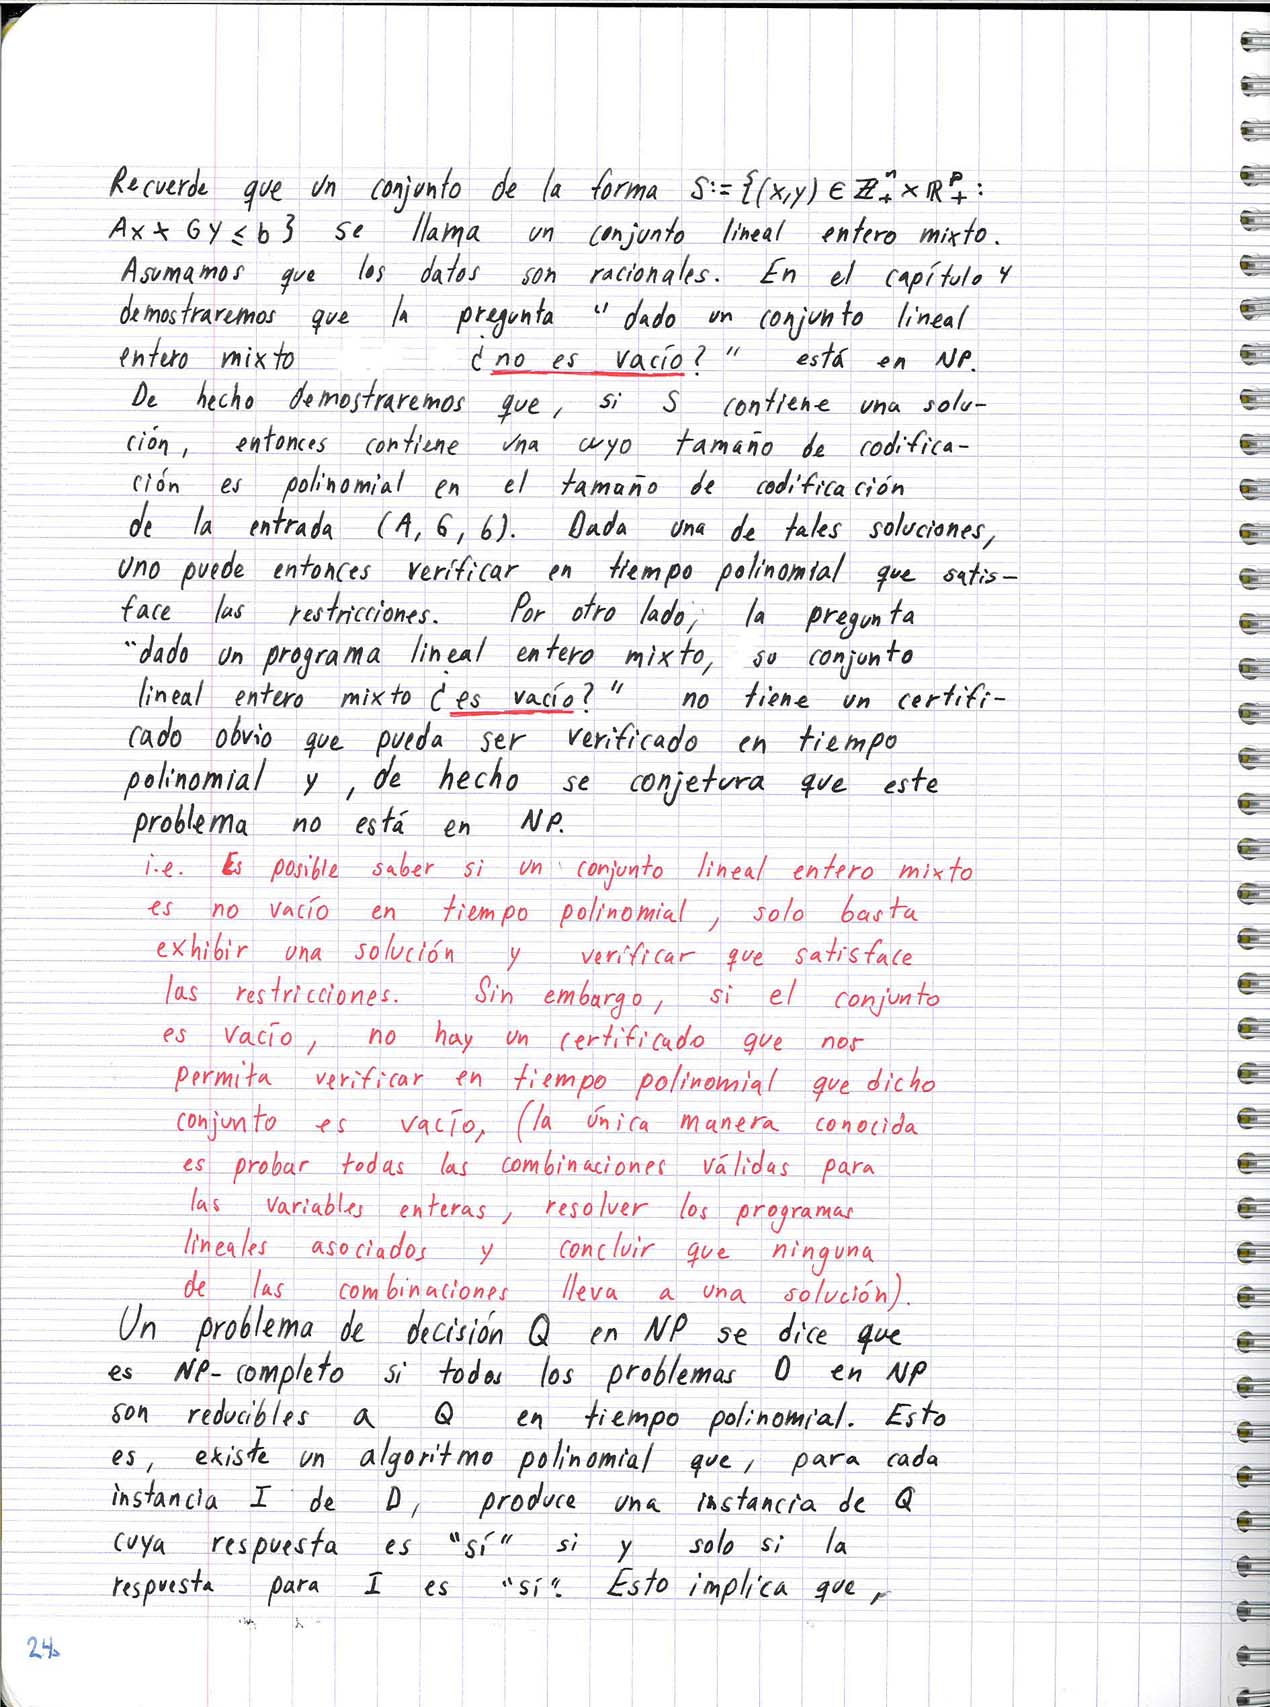 Recuerde que un conjunto de la forma S:={(x,y) ∈ ℤ₊ⁿ × ℝ₊ᵖ:
Ax + Gy ≤ b} se llama un conjunto lineal entero mixto.
Asumamos que los datos son racionales. En el capítulo 4
demostraremos que la pregunta "dado un conjunto lineal
entero mixto ¿no es vacío?" está en NP.
De hecho demostraremos que, si S contiene una solu-
ción, entonces contiene una cuyo tamaño de codifica-
ción es polinomial en el tamaño de codificación
de la entrada (A, G, b). Dada una de tales soluciones,
uno puede entonces verificar en tiempo polinomial que satis-
face las restricciones. Por otro lado, la pregunta
"dado un programa lineal entero mixto, su conjunto
lineal entero mixto ¿es vacío?" no tiene un certifi-
cado obvio que pueda ser verificado en tiempo
polinomial y, de hecho se conjetura que este
problema no está en NP.
i.e. Es posible saber si un conjunto lineal entero mixto
es no vacío en tiempo polinomial, solo basta
exhibir una solución y verificar que satisface
las restricciones. Sin embargo, si el conjunto
es vacío, no hay un certificado que nos
permita verificar en tiempo polinomial que dicho
conjunto es vacío, (la única manera conocida
es probar todas las combinaciones válidas para
las variables enteras, resolver los programas
lineales asociados y concluir que ninguna
de las combinaciones lleva a una solución).
Un problema de decisión Q en NP se dice que
es NP-completo si todos los problemas D en NP
son reducibles a Q en tiempo polinomial. Esto
es, existe un algoritmo polinomial que, para cada
instancia I de D, produce una instancia de Q
cuya respuesta es "sí" si y solo si la
respuesta para I es "sí". Esto implica que,
24